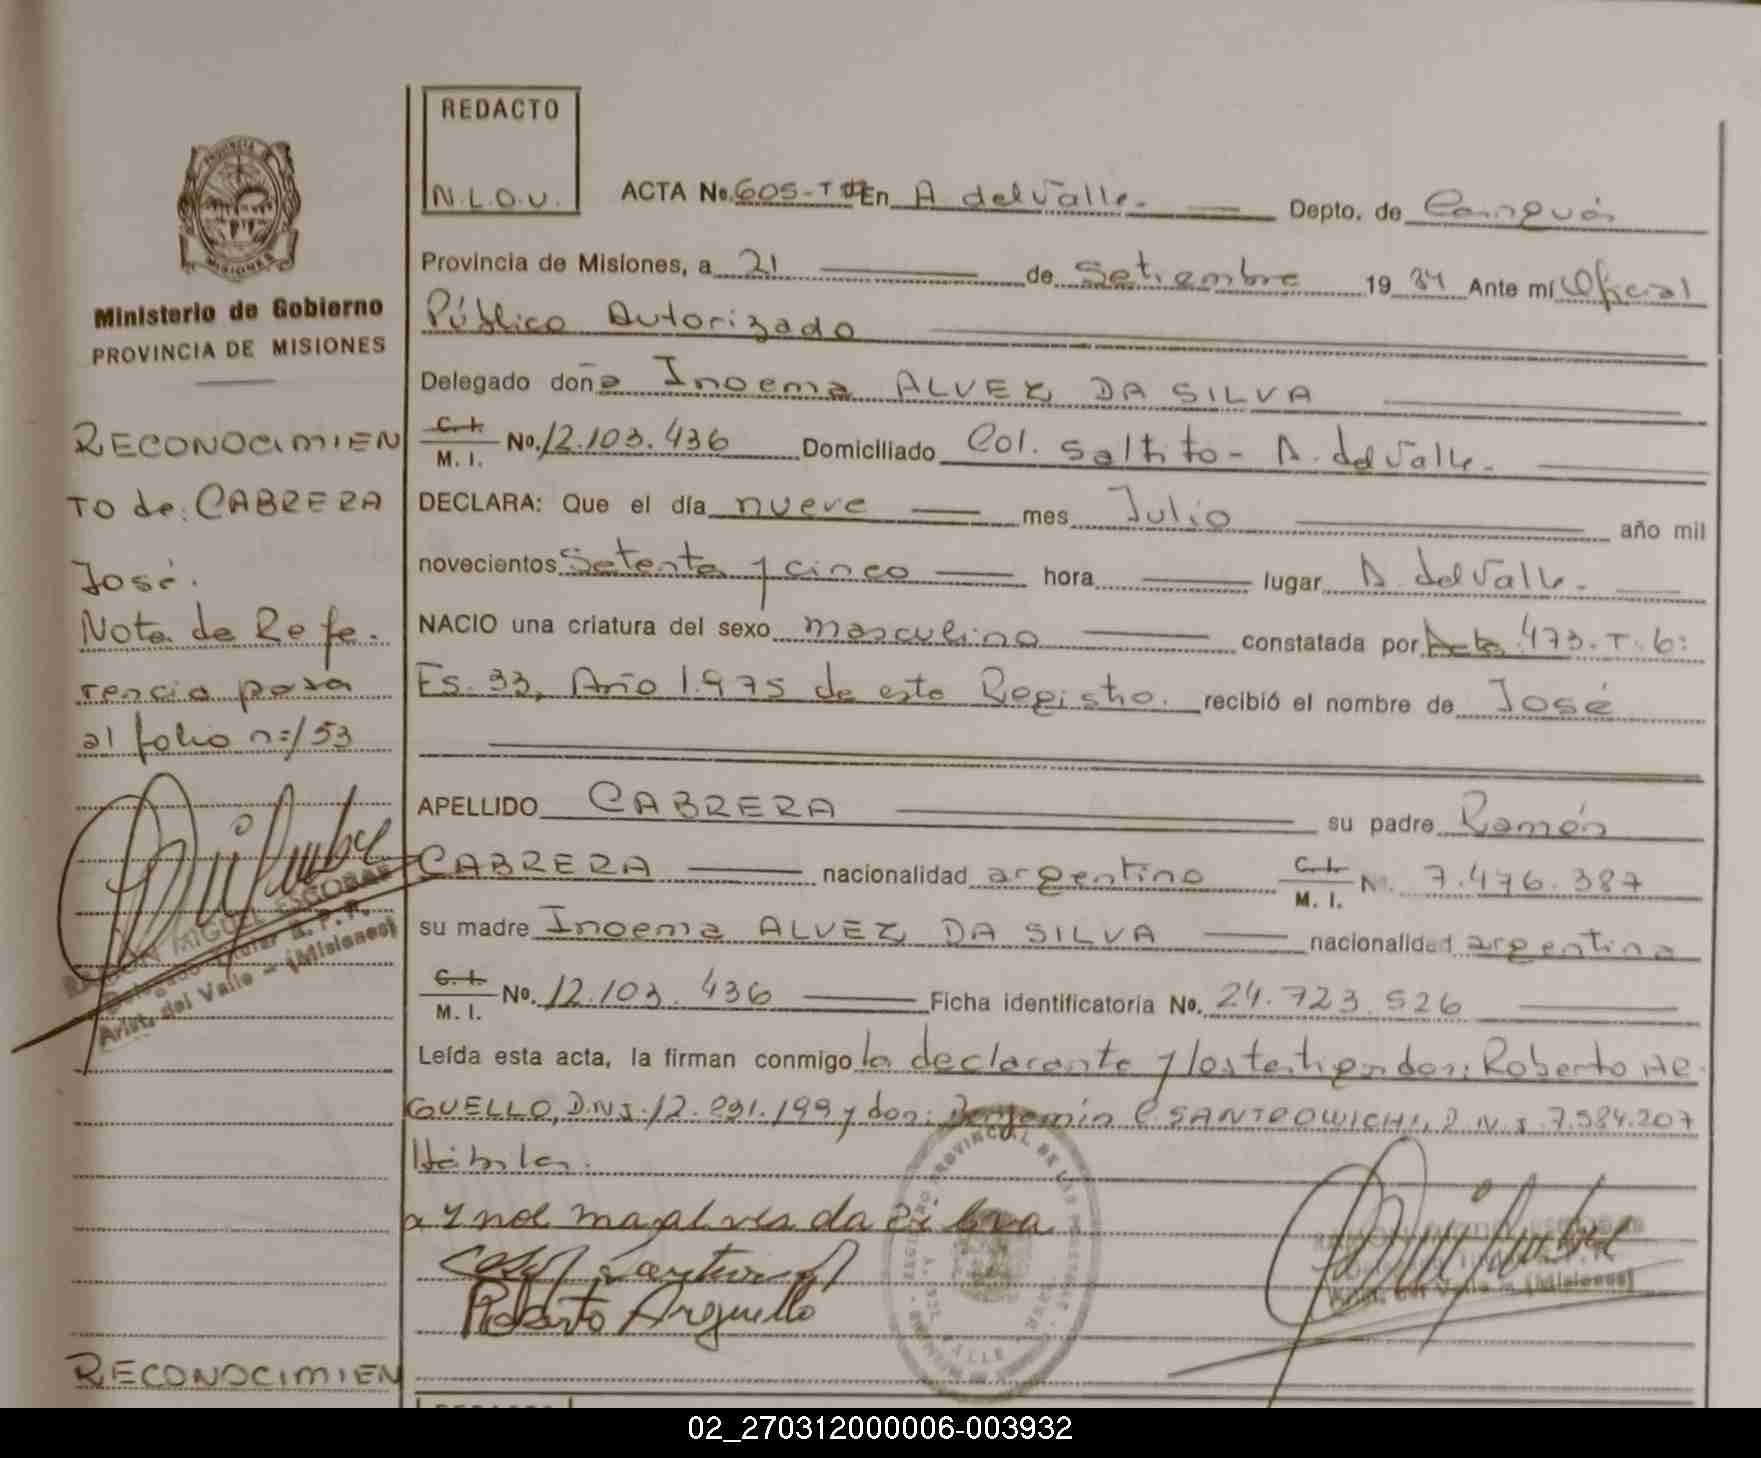 REDACTO
N.L.O.V.
ACTA No. 605-T En A del Valle. Depto. de Cainguás
Provincia de Misiones, a 21 de Setiembre 1984 Ante mí Oficial
Público Autorizado
Delegado doña Inoema ALVEZ DA SILVA
C. I. M. I. No. 12.103.436 Domiciliado Col. Saltito - A. del Valle.
DECLARA: Que el día nueve mes Julio año mil
novecientos Setenta y cinco hora lugar A. del Valle.
NACIO una criatura del sexo masculino constatada por Acta 473. T. 6:
Fs. 33, Año 1.975 de este Registro. recibió el nombre de José
APELLIDO CABRERA su padre Ramón
CABRERA nacionalidad argentino C. I. M. I. N. 7.476.387
su madre Inoema ALVEZ DA SILVA nacionalidad argentina
C. I. M. I. No. 12.103.436 Ficha identificatoria No. 24.723.526
Leída esta acta, la firman conmigo la declarante y los testigos don: Roberto AR
GUELLO, D.N.I. 12. 199 y don: Benjamín C. D.N.I. 7.584.207
Hábiles.
Roberto Arguello
Ministerio de Gobierno
PROVINCIA DE MISIONES
RECONOCIMIEN
TO de: CABRERA
José.
Nota de Refe.
rencia pasa
al folio nº 153
RAMON MIGUEL ESCOBAR
Delegado Titular R. P. P.
Arist. del Valle - (Misiones)
REGISTRO PROVINCIAL DE LAS PERSONAS
Arist. del Valle - (Misiones)
RECONOCIMIEN
02_270312000006-003932